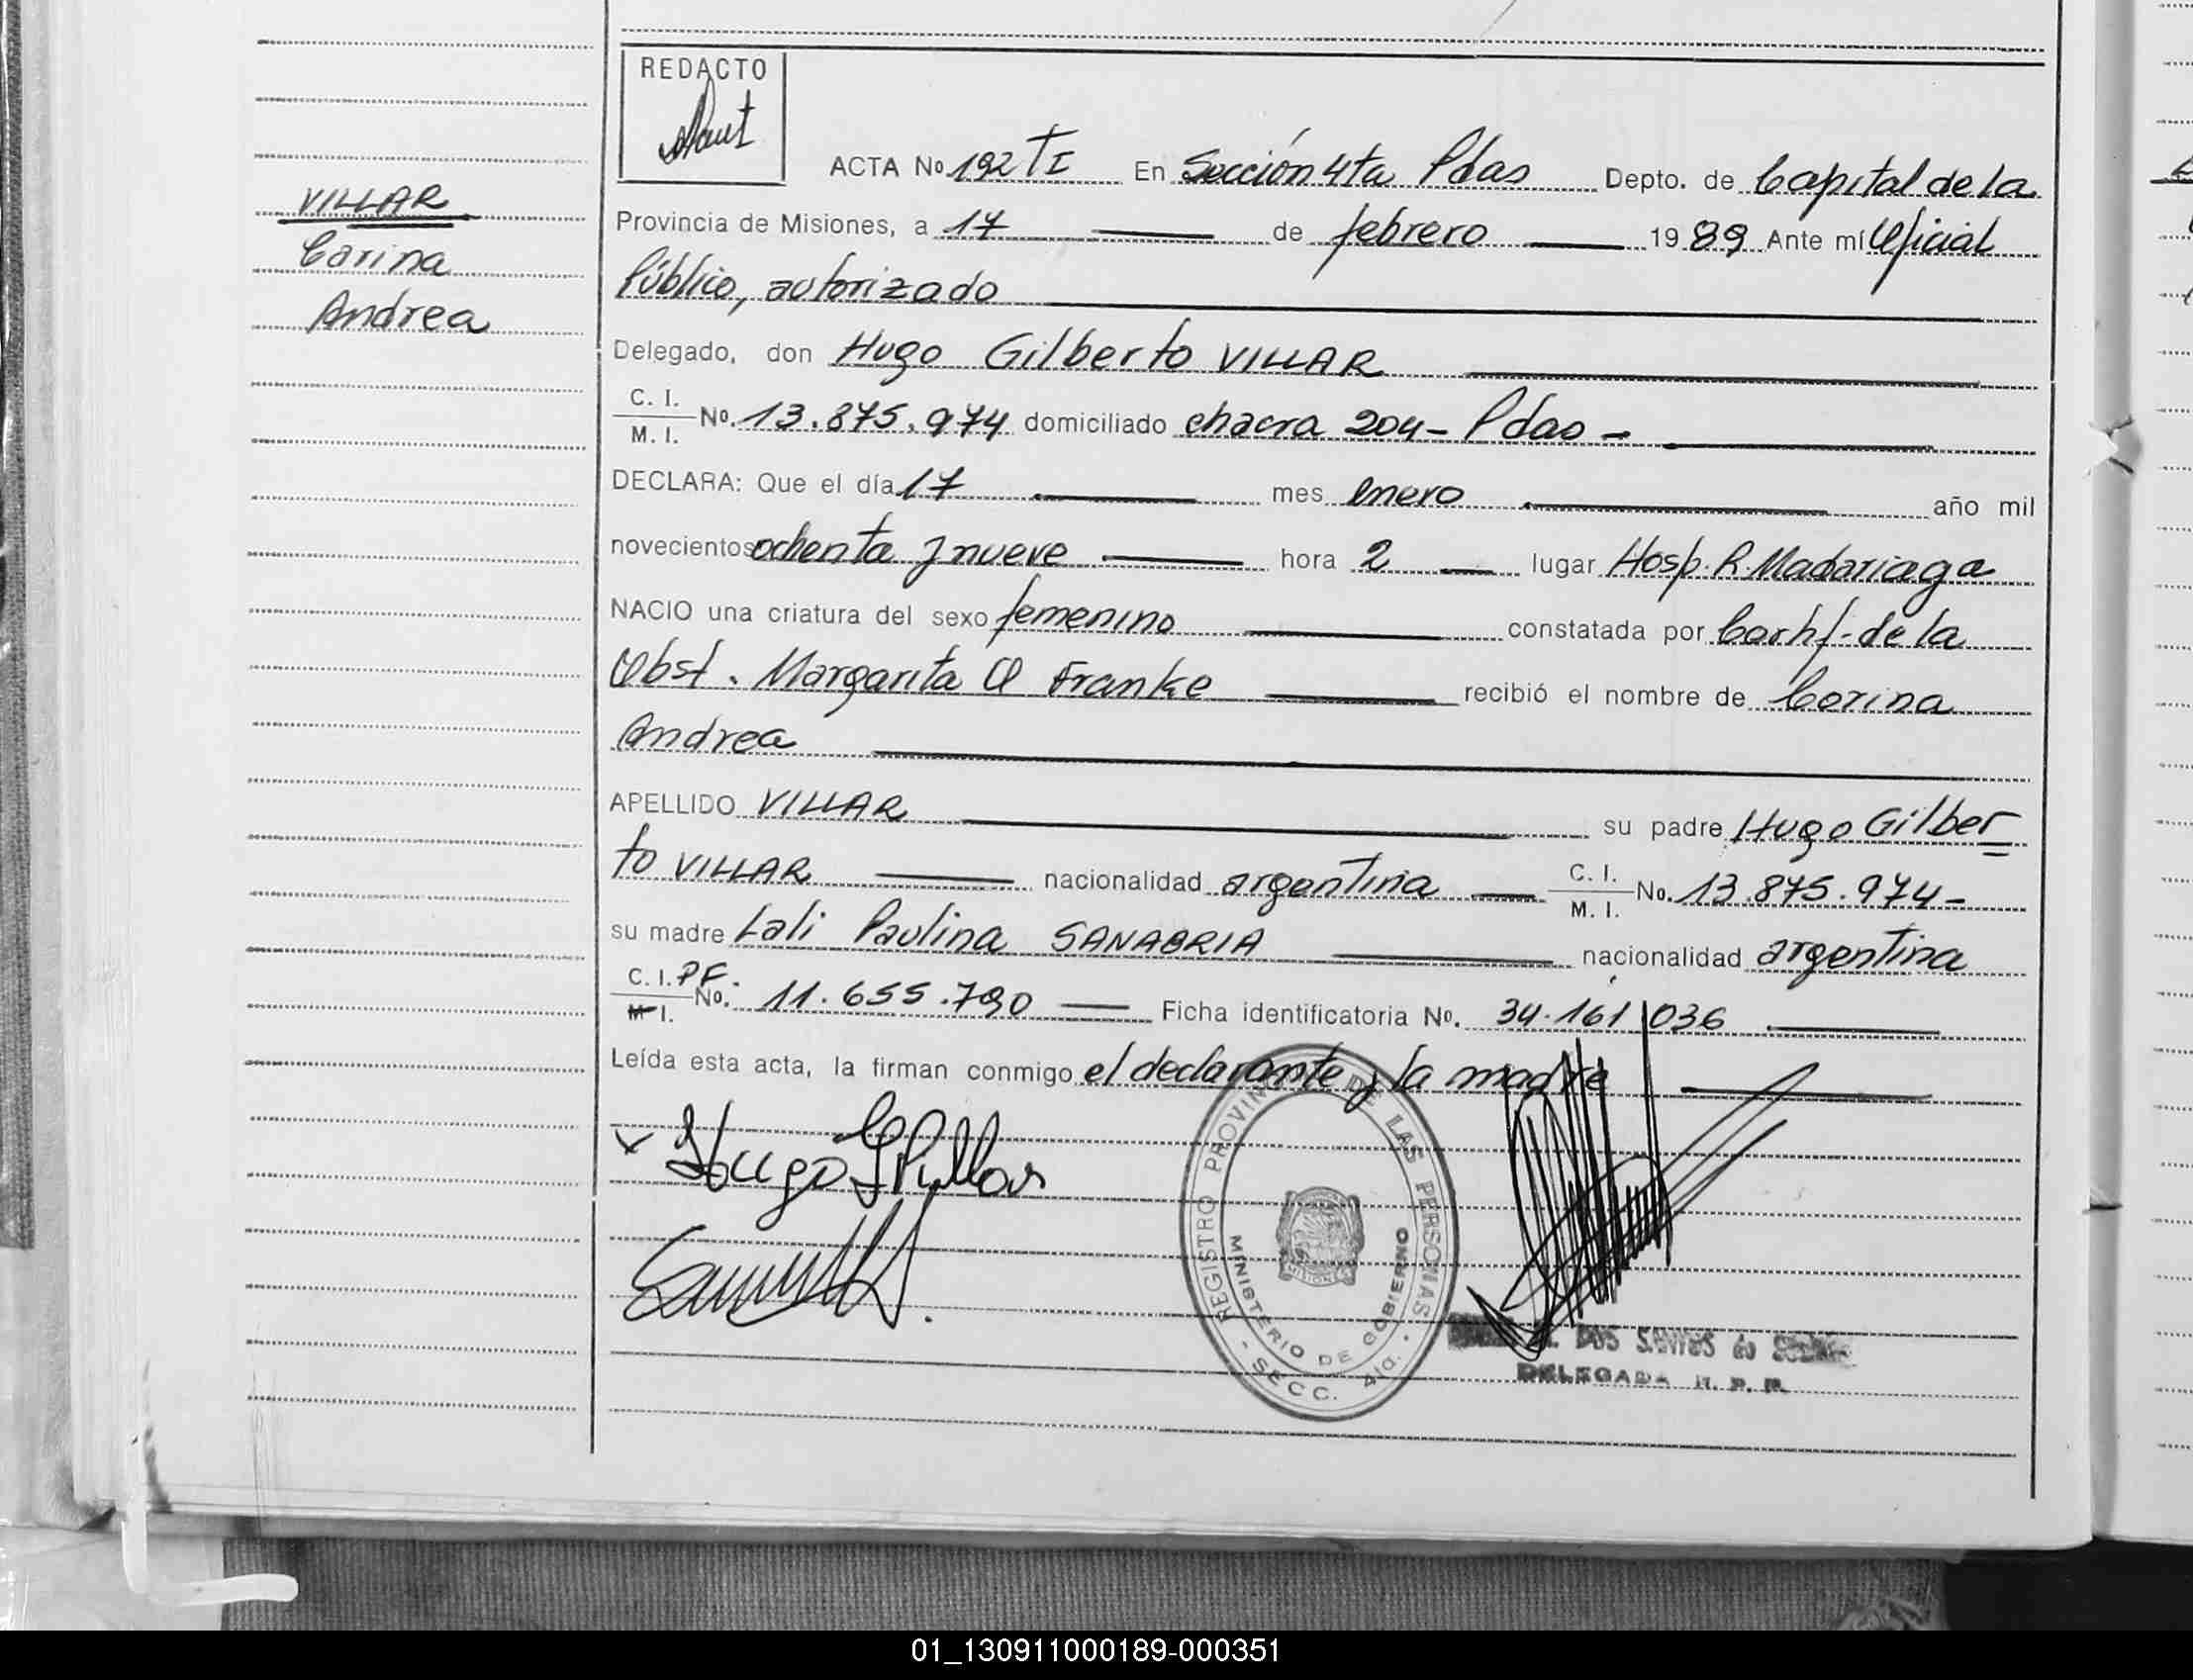 REDACTO
ACTA No 192 TI En Sección 4ta Pdas Depto. de Capital de la
VILLAR
Carina
Andrea
Provincia de Misiones, a 17 de febrero 1989 Ante mí Oficial
Público, autorizado
Delegado, don Hugo Gilberto VILLAR
C. I.
M. I. No. 13.875.974 domiciliado chacra 204 - Pdas -
DECLARA: Que el día 17 mes enero año mil
novecientos ochenta y nueve hora 2 lugar Hosp. R. Madariaga
NACIO una criatura del sexo femenino constatada por de la
Obst. Margarita Franke recibió el nombre de Carina
Andrea
APELLIDO VILLAR su padre Hugo Gilber
to VILLAR nacionalidad argentina C. I.
M. I. No. 13.875.974 -
su madre Lali Paulina SANABRIA nacionalidad argentina
C. I. PF.
M. I. No. 11.655.790 Ficha identificatoria No. 34.161.036
Leída esta acta, la firman conmigo el declarante y la madre
x Hugo G Villar
REGISTRO PROVINCIAL DE LAS PERSONAS
MINISTERIO DE GOBIERNO
MISIONES
- SECC. 4ta. -
DOS SANTOS de
DELEGADA R. P. P.
01_130911000189-000351